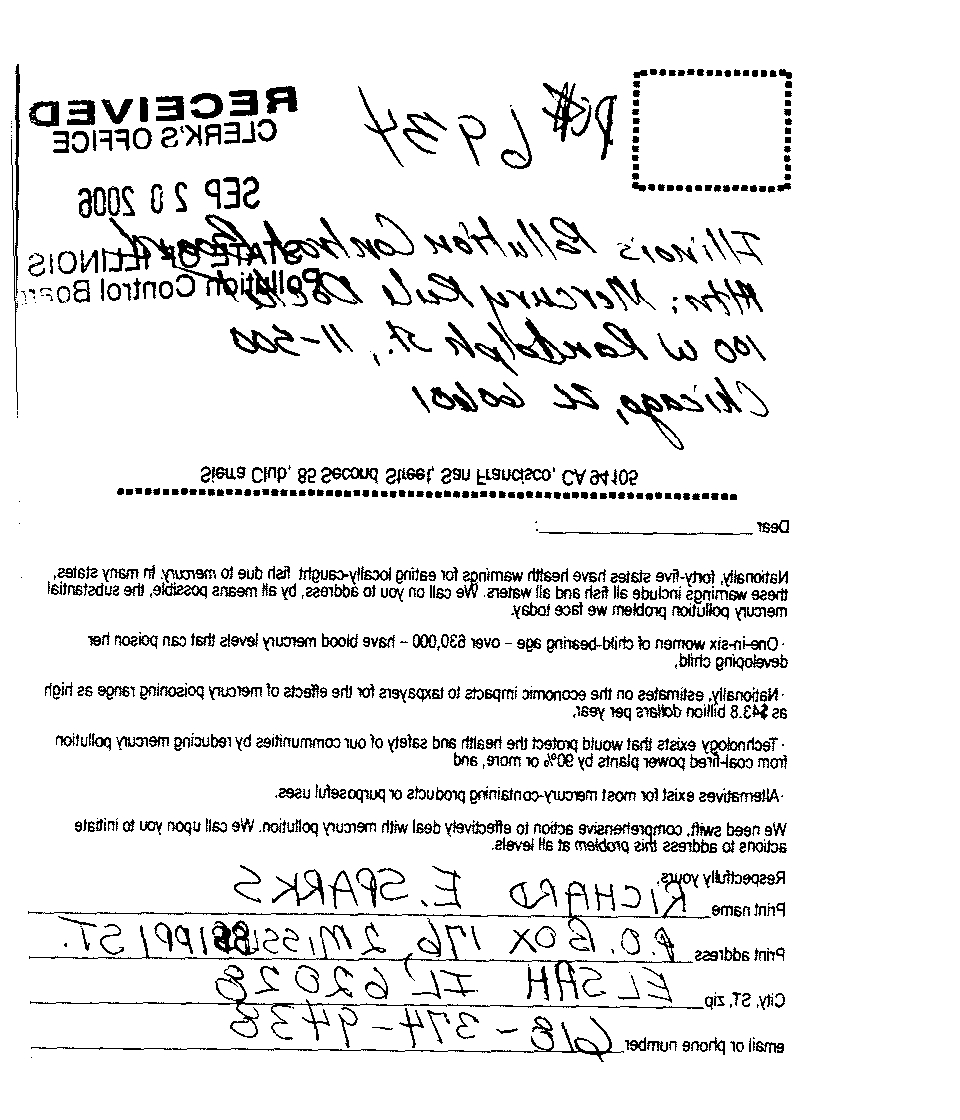 RECEIVED
CLERK'S OFFICE
SEP 20 2006
STATE OF ILLINOIS
Pollution Control Board
PC# 6934
Illinois Pollution Control Board
Attn: Mercury Rule Docket
100 W Randolph St., 11-500
Chicago, IL 60601
Sierra Club, 85 Second Street, San Francisco, CA 94105
Dear :
Nationally, forty-five states have health warnings for eating locally-caught fish due to mercury. In many states,
these warnings include all fish and all waters. We call on you to address, by all means possible, the substantial
mercury pollution problem we face today.
· One-in-six women of child-bearing age – over 630,000 – have blood mercury levels that can poison her
developing child,
· Nationally, estimates on the economic impacts to taxpayers for the effects of mercury poisoning range as high
as $43.8 billion dollars per year,
· Technology exists that would protect the health and safety of our communities by reducing mercury pollution
from coal-fired power plants by 90% or more, and
· Alternatives exist for most mercury-containing products or purposeful uses.
We need swift, comprehensive action to effectively deal with mercury pollution. We call upon you to initiate
actions to address this problem at all levels.
Respectfully yours,
Print name RICHARD E. SPARKS
Print address P.O. BOX 176, 2 MISSISSIPPI ST.
City, ST, zip ELSAH IL, 62028
email or phone number 618-374-9438